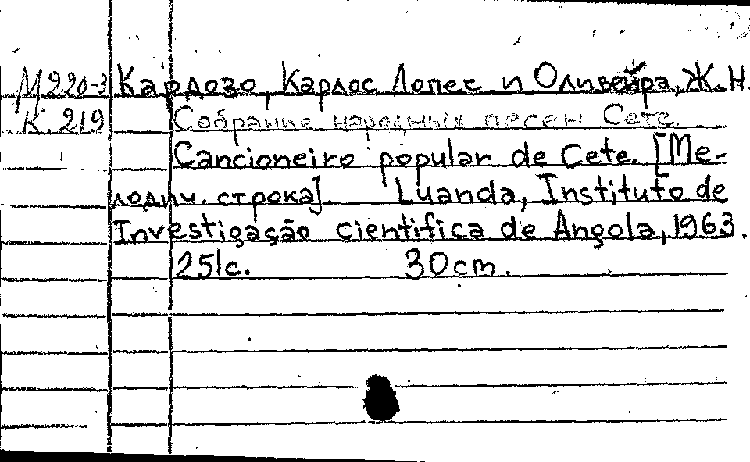 М220-3 Кардозо, Карлос Лопес и Оливейра, Ж. Н.
К.219 Собрание народных песен Сете.
Cancioneiro popular de Cete. [Ме-
лодич. строка]. Luanda, Instituto de
Investigação cientifica de Angola, 1963.
251c. 30cm.